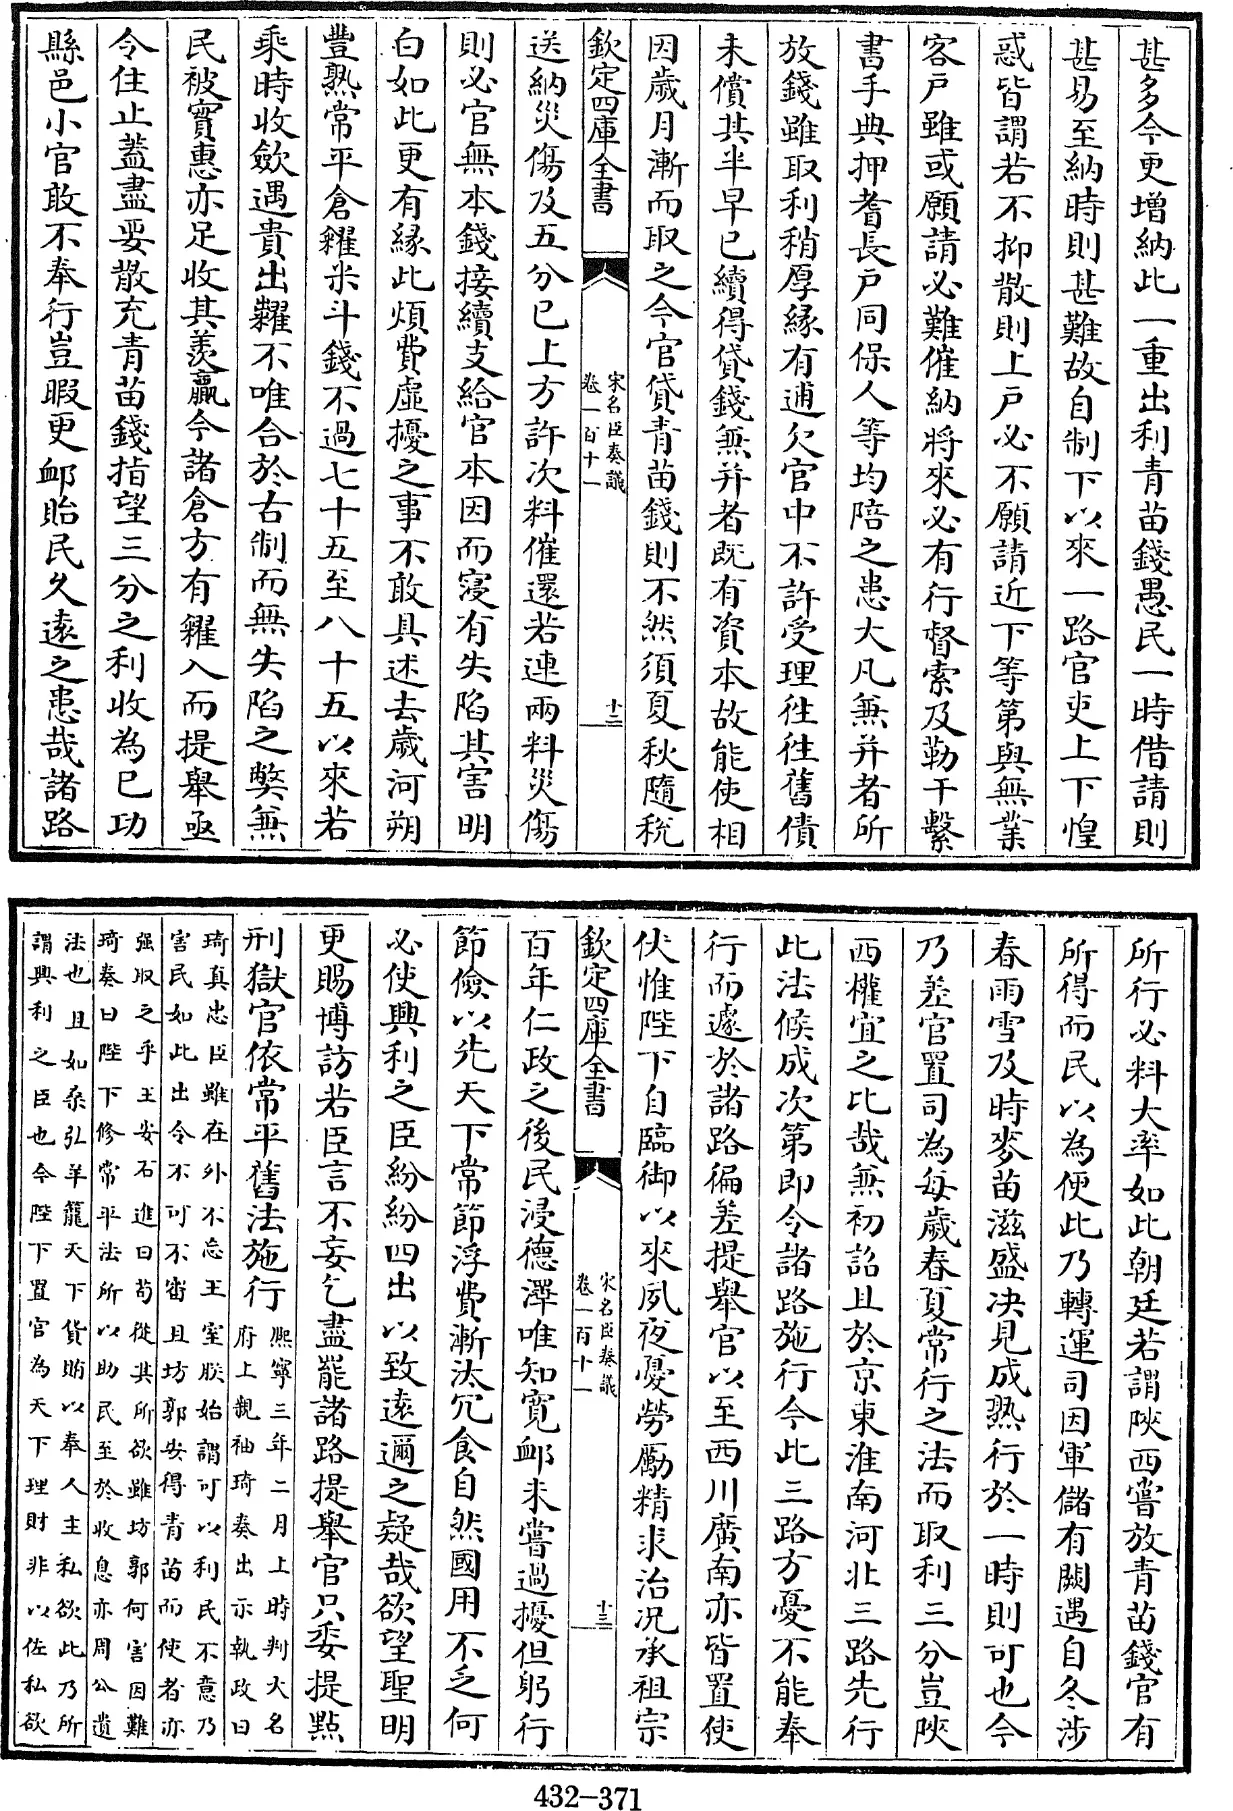 甚多今更增納此一重出利青苗錢愚民一時借請則
甚易至納時則甚難故自制下以來一路官吏上下惶
惑皆謂若不抑散則上戸必不願請近下等第與無業
客戸雖或願請必難催納將來必有行督索及勒干繫
書手典押耆長戸同保人等均陪之患大凡兼并者所
放錢雖取利稍厚縁有逋欠官中不許受理徃徃舊債
未償其半早已續得貸錢兼并者既有資本故能使相
因歲月漸而取之今官貸青苗錢則不然須夏秋隨稅
欽定四庫全書
宋名臣奏議
卷一百十一
十二
送納災傷及五分已上方許次料催還若連兩料災傷
則必官無本錢接續支給官本因而寖有失陷其害明
白如此更有縁此煩費虛擾之事不敢具述去歲河朔
豐熟常平倉糴米斗錢不過七十五至八十五以來若
乘時收斂遇貴出糶不唯合於古制而無失陷之弊兼
民被實惠亦足收其羨贏今諸倉方有糴入而提舉亟
令住止蓋盡要散充青苗錢指望三分之利收為已功
縣邑小官敢不奉行豈暇更䘏貽民久遠之患哉諸路
所行必料大率如此朝廷若謂陜西嘗放青苗錢官有
所得而民以為便此乃轉運司因軍儲有闕遇自冬涉
春雨雪及時麥苗滋盛决見成熟行於一時則可也今
乃差官置司為每歲春夏常行之法而取利三分豈陜
西權宜之比哉兼初詔且於京東淮南河北三路先行
此法候成次第即令諸路施行今此三路方憂不能奉
行而遽於諸路徧差提舉官以至西川廣南亦皆置使
伏惟陛下自臨御以來夙夜憂勞勵精求治况承祖宗
欽定四庫全書
宋名臣奏議
卷一百十一
十三
百年仁政之後民浸德澤唯知寛䘏未嘗過擾但躬行
節儉以先天下常節浮費漸汰冗食自然國用不乏何
必使興利之臣紛紛四出以致遠邇之疑哉欲望聖明
更賜博訪若臣言不妄乞盡罷諸路提舉官只委提點
刑獄官依常平舊法施行
熙寧三年二月上時判大名
府上親袖琦奏出示執政曰
琦真忠臣雖在外不忘王室朕始謂可以利民不意乃
害民如此出令不可不審且坊郭安得青苗而使者亦
强取之乎王安石進曰茍從其所欲雖坊郭何害因難
琦奏曰陛下修常平法所以助民至於收息亦周公遺
法也且如桑弘羊籠天下貨賄以奉人主私欲此乃所
謂興利之臣也今陛下置官為天下理財非以佐私欲
432-371